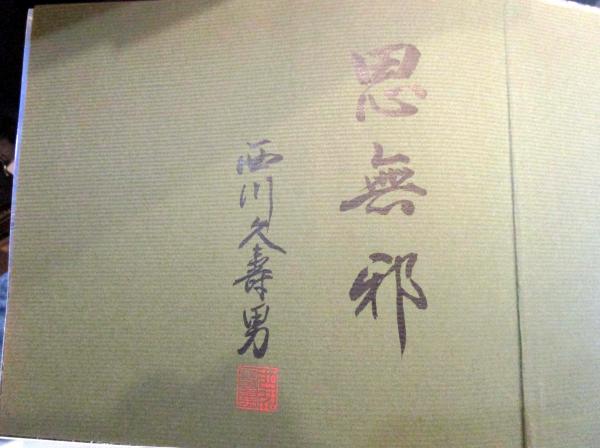 思無邪
西川久壽男